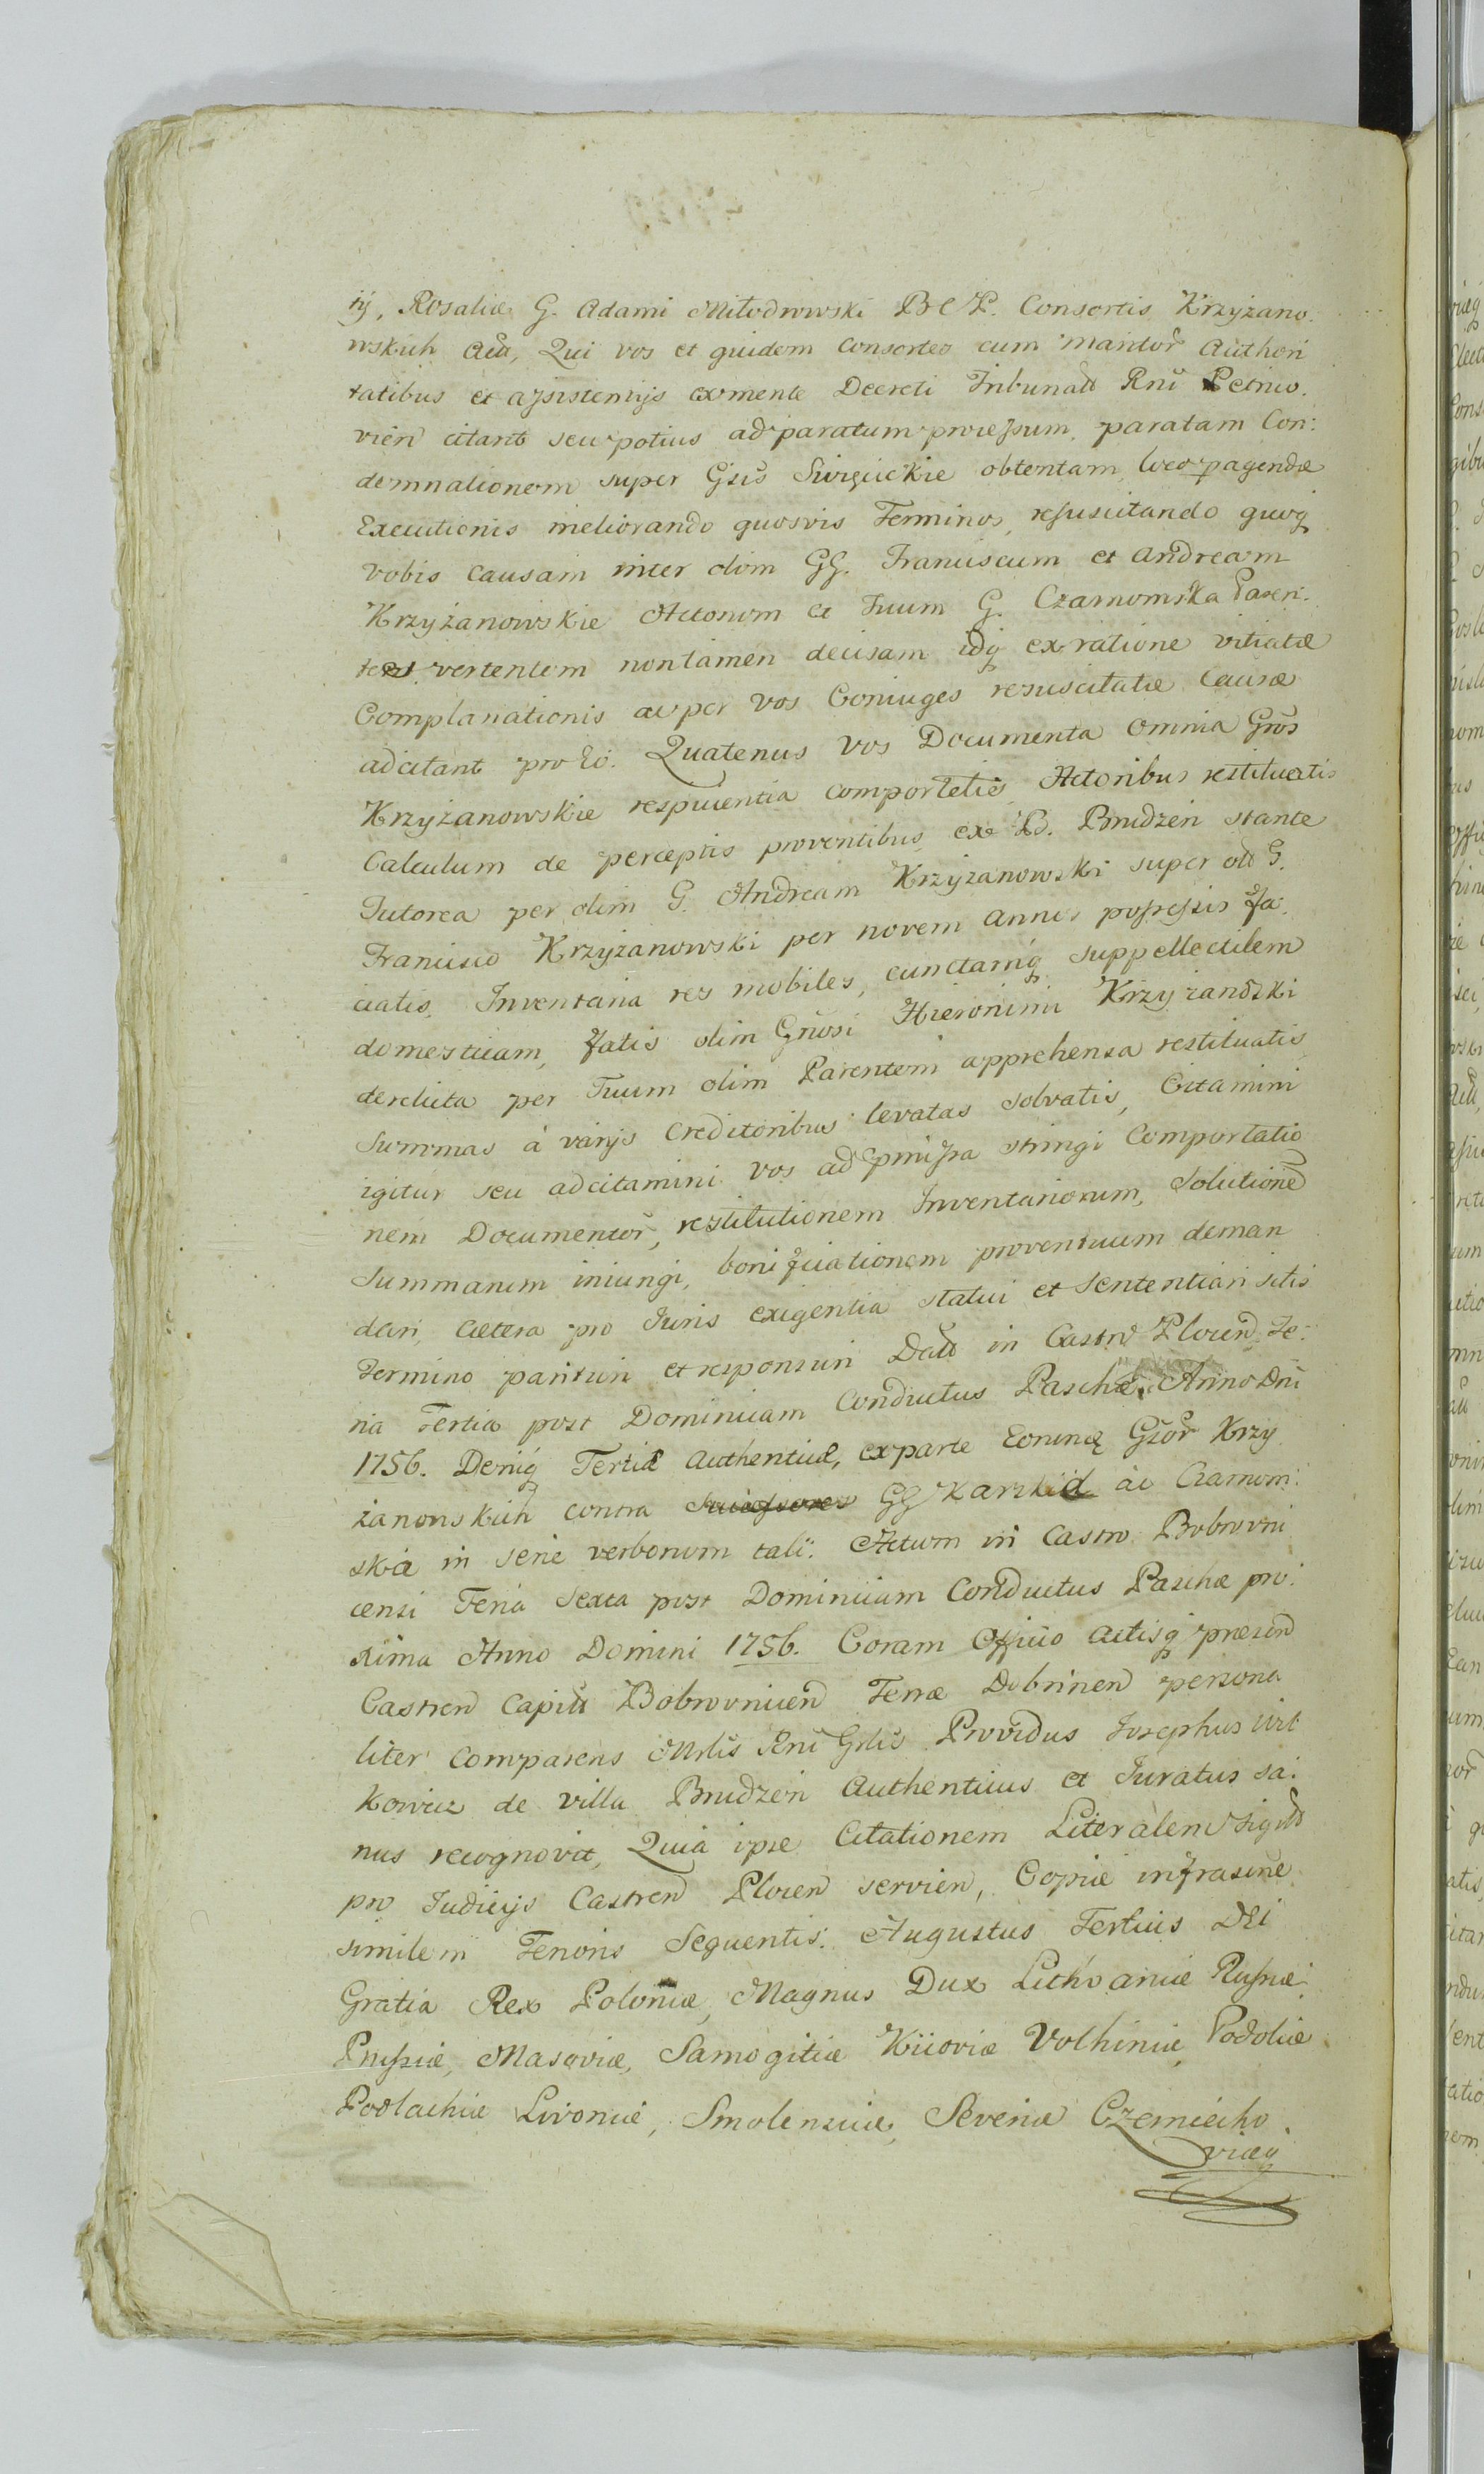 ij, Rosaliæ G. Adami Miłodrowski B C P. Consortis Krzyżano.
wskich Actū, Qui vos et quidem consortes cum maritor̄ Authori
tatibus et assistentijs ex mente Decreti Tribunalt Rnī Petrico.
vien citant seu potius ad paratum processum, paratam Con:
demnationem super Gsis Swięcickie obtentam, loco pagendæ
Executionis meliorando quosvis Terminos, resuscitando quoq
vobis causam inter olim GG. Franciscum et Andream
Krzyżanowskie Actorum et Tuum G. Czarnomska Paren.
tes vertentem non tamen decisam idq ex ratione vitiatæ
Complanationis ac per vos Coniuges resuscitatæ Causæ
adcitant pro eo. Quatenus vos Documenta omnia Gros
Krzyżanowskie respicientia comportetis, Actoribus restituatis
Calculum de perceptis proventibus, ex Bd. Brudzen stante
Tutorea per olim G. Andream Krzyżanowski super olt G.
Francisco Krzyżanowski per novem annis possessis fa.
ciatis, Inventaria res mobiles, cunctamq suppellectilem
domesticam, fatis olim Gnosi Hieronimi Krzyżanowski
derelicta per Tuum olim Parentem apprehensa restituatis
Summas à varijs Creditoribus levatas solvatis, Citamini
igitur seu adcitamini vos ad pmissa stringi comportatio
nem Documentor̄, restitutionem Inventariorum, Solutione
Summarum iniungi, bonificationem proventuum deman
dari, cætera pro Juris exigentia statui et sententiari sitis
Termino parituri et responsuri Datt in Castro Plocen Fe:
ria Tertia post Dominicam Conductus Paschæ, Anno Dni
1756. Deniq Tertiæ Authenticæ, ex parte Eorunq Gsor̄ Krzy
żanowskich contra Successores GG Karskich ac Czarnom:
ska in serie verborum tali: Actum in Castro Bobrovni
censi Feria Sexta post Dominicam Conductus Paschæ pro:
xima Anno Domini 1756. Coram Officio actisq præsen
Castren Capitt Bobrovnicen Terræ Dobrinen persona
liter comparens Mrlis Rni Grlis Providus Josephus Wit
kowicz de villa Brudzen Authenticus et Juratus sa:
nus recognovit, Quia ipse Citationem Literalem Sigilt
pro Judicijs Castren Plocen servien, Copiæ infrascrie
similem Tenoris Sequentis: Augustus Tertius DEI
Gratia Rex Poloniæ, Magnus Dux Lithvaniæ Russiæ,
Prussiæ, Masoviæ, Samogitiæ Kiioviæ Volhiniæ, Podoliæ
Podlachiæ Livoniæ, Smolensciæ, Severiæ Czerniecho.
viæq